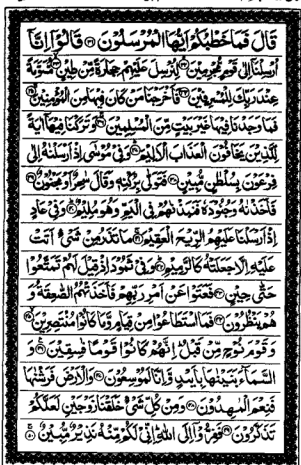 قَالَ فَمَا خَطْبُكُمْ اَيُّهَا الْمُرْسَلُوْنَ ﴿۳۱﴾ قَالُوْٓا اِنَّآ
اُرْسِلْنَآ اِلٰى قَوْمٍ مُّجْرِمِيْنَ ﴿۳۲﴾ لِنُرْسِلَ عَلَيْهِمْ حِجَارَةً مِّنْ طِيْنٍ ﴿۳۳﴾ مُّسَوَّمَةً
عِنْدَ رَبِّكَ لِلْمُسْرِفِيْنَ ﴿۳۴﴾ فَاَخْرَجْنَا مَنْ كَانَ فِيْهَا مِنَ الْمُؤْمِنِيْنَ ﴿۳۵﴾
فَمَا وَجَدْنَا فِيْهَا غَيْرَ بَيْتٍ مِّنَ الْمُسْلِمِيْنَ ﴿۳۶﴾ وَتَرَكْنَا فِيْهَآ اٰيَةً
لِّلَّذِيْنَ يَخَافُوْنَ الْعَذَابَ الْاَلِيْمَ ﴿۳۷﴾ وَفِيْ مُوْسٰٓى اِذْ اَرْسَلْنٰهُ اِلٰى
فِرْعَوْنَ بِسُلْطٰنٍ مُّبِيْنٍ ﴿۳۸﴾ فَتَوَلّٰى بِرُكْنِهٖ وَقَالَ سٰحِرٌ اَوْ مَجْنُوْنٌ ﴿۳۹﴾
فَاَخَذْنٰهُ وَجُنُوْدَهٗ فَنَبَذْنٰهُمْ فِى الْيَمِّ وَهُوَ مُلِيْمٌ ﴿۴۰﴾ وَفِيْ عَادٍ
اِذْ اَرْسَلْنَا عَلَيْهِمُ الرِّيْحَ الْعَقِيْمَ ﴿۴۱﴾ مَا تَذَرُ مِنْ شَيْءٍ اَتَتْ
عَلَيْهِ اِلَّا جَعَلَتْهُ كَالرَّمِيْمِ ﴿۴۲﴾ وَفِيْ ثَمُوْدَ اِذْ قِيْلَ لَهُمْ تَمَتَّعُوْا
حَتّٰى حِيْنٍ ﴿۴۳﴾ فَعَتَوْا عَنْ اَمْرِ رَبِّهِمْ فَاَخَذَتْهُمُ الصّٰعِقَةُ وَ
هُمْ يَنْظُرُوْنَ ﴿۴۴﴾ فَمَا اسْتَطَاعُوْا مِنْ قِيَامٍ وَّمَا كَانُوْا مُنْتَصِرِيْنَ ﴿۴۵﴾
وَقَوْمَ نُوْحٍ مِّنْ قَبْلُ اِنَّهُمْ كَانُوْا قَوْمًا فٰسِقِيْنَ ﴿۴۶﴾ وَ
السَّمَآءَ بَنَيْنٰهَا بِاَيْدٍ وَّاِنَّا لَمُوْسِعُوْنَ ﴿۴۷﴾ وَالْاَرْضَ فَرَشْنٰهَا
فَنِعْمَ الْمٰهِدُوْنَ ﴿۴۸﴾ وَمِنْ كُلِّ شَيْءٍ خَلَقْنَا زَوْجَيْنِ لَعَلَّكُمْ
تَذَكَّرُوْنَ ﴿۴۹﴾ فَفِرُّوْٓا اِلَى اللّٰهِ اِنِّيْ لَكُمْ مِّنْهُ نَذِيْرٌ مُّبِيْنٌ ﴿۵۰﴾